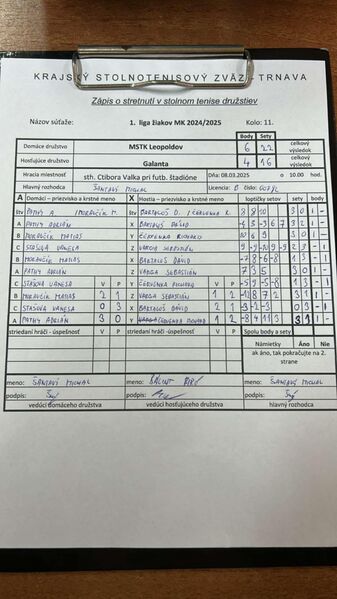 KRAJSKÝ STOLNOTENISOVÝ ZVÄZ - TRNAVA
Zápis o stretnutí v stolnom tenise družstiev
Názov súťaže: 1. liga žiakov MK 2024/2025 Kolo: 11.
Body Sety
Domáce družstvo MSTK Leopoldov 6 22 celkový výsledok
Hosťujúce družstvo Galanta 4 16 celkový výsledok
Hracia miestnosť sth. Ctibora Valka pri futb. štadióne Dňa: 08.03.2025 o 10.00 hod.
Hlavný rozhodca ŠANTAVÝ MICHAL Licencia: číslo:
A Domáci - priezvisko a krstné meno X Hostia - priezvisko a krstné meno loptičky setov sety body
štv PATHY A. / MORAVČÍK M. štv BARTALOŠ D. / ČERVENKA R. 8 8 10 3 0 1 -
A PATHY ADRIÁN X BARTALOŠ DÁVID
B MORAVČÍK MATIAS Y ČERVENKA RICHARD 3 0 1 -
C STAŠOVÁ VANESA Z VARGA SEBASTIÁN 2 3 - 1
B MORAVČÍK MATIAS X BARTALOŠ DÁVID 1 3 - 1
A PATHY ADRIÁN Z VARGA SEBASTIÁN 7 3 5 3 0 1 -
C STAŠOVÁ VANESA V P Y ČERVENKA RICHARD V P 1 3 - 1
B MORAVČÍK MATIAS 2 1 Z VARGA SEBASTIÁN 1 2 3 1 1 -
C STAŠOVÁ VANESA 0 3 X BARTALOŠ DÁVID 2 1 0 3 - 1
A PATHY ADRIÁN 3 0 Y ČERVENKA RICHARD 1 2 3 1 1 -
striedaní hráči - úspešnosť V P striedaní hráči - úspešnosť V P Spolu body a sety
Námietky Áno Nie
ak áno, tak pokračujte na 2. strane
meno: ŠANTAVÝ MICHAL meno: meno: ŠANTAVÝ MICHAL
podpis: podpis: podpis:
vedúci domáceho družstva vedúci hosťujúceho družstva hlavný rozhodca